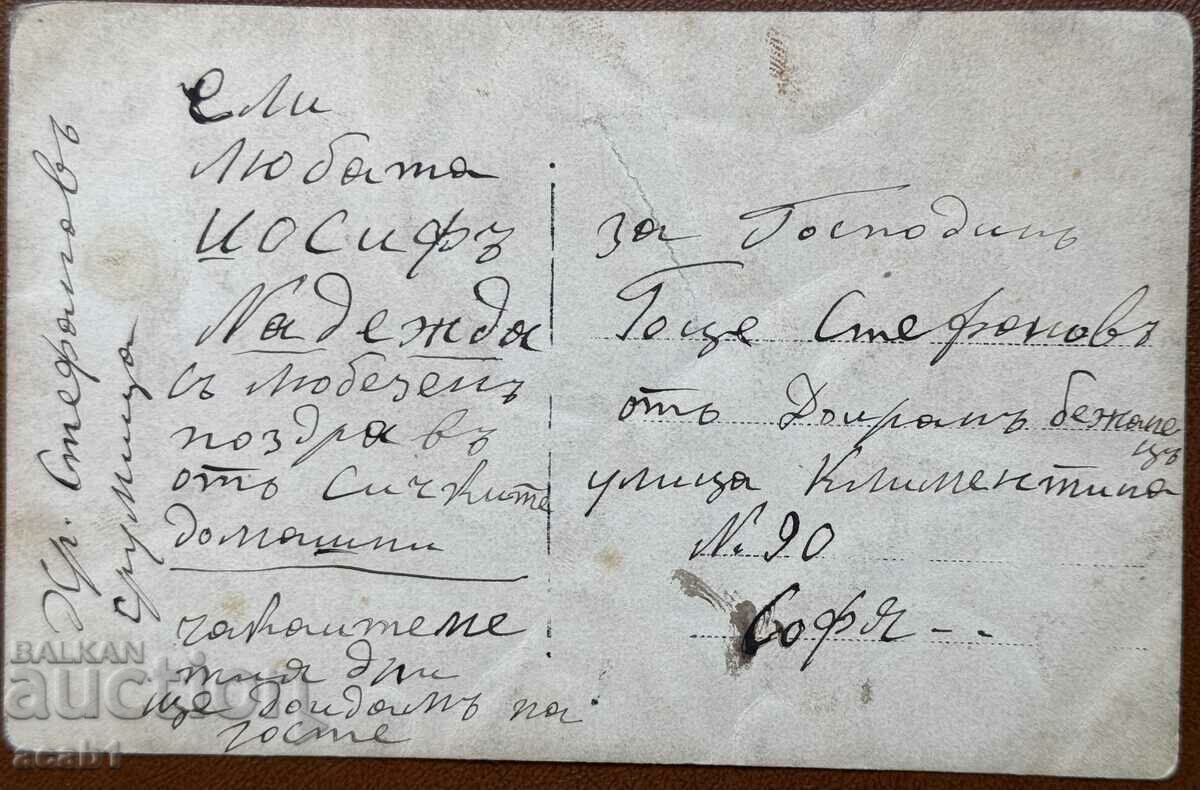 ели
Любата
Иосифъ
Надежда
съ любезенъ
поздравъ
отъ сичките
домашни
чакаитене
тия дни
ще доидамъ на
госте
Хр. Стефановъ
Струмица
за Господинъ
Гоце Стефановъ
отъ Доиранъ бежане
цъ
улица Климентина
№ 90
Софя - -
BALKAN
auction
acab1